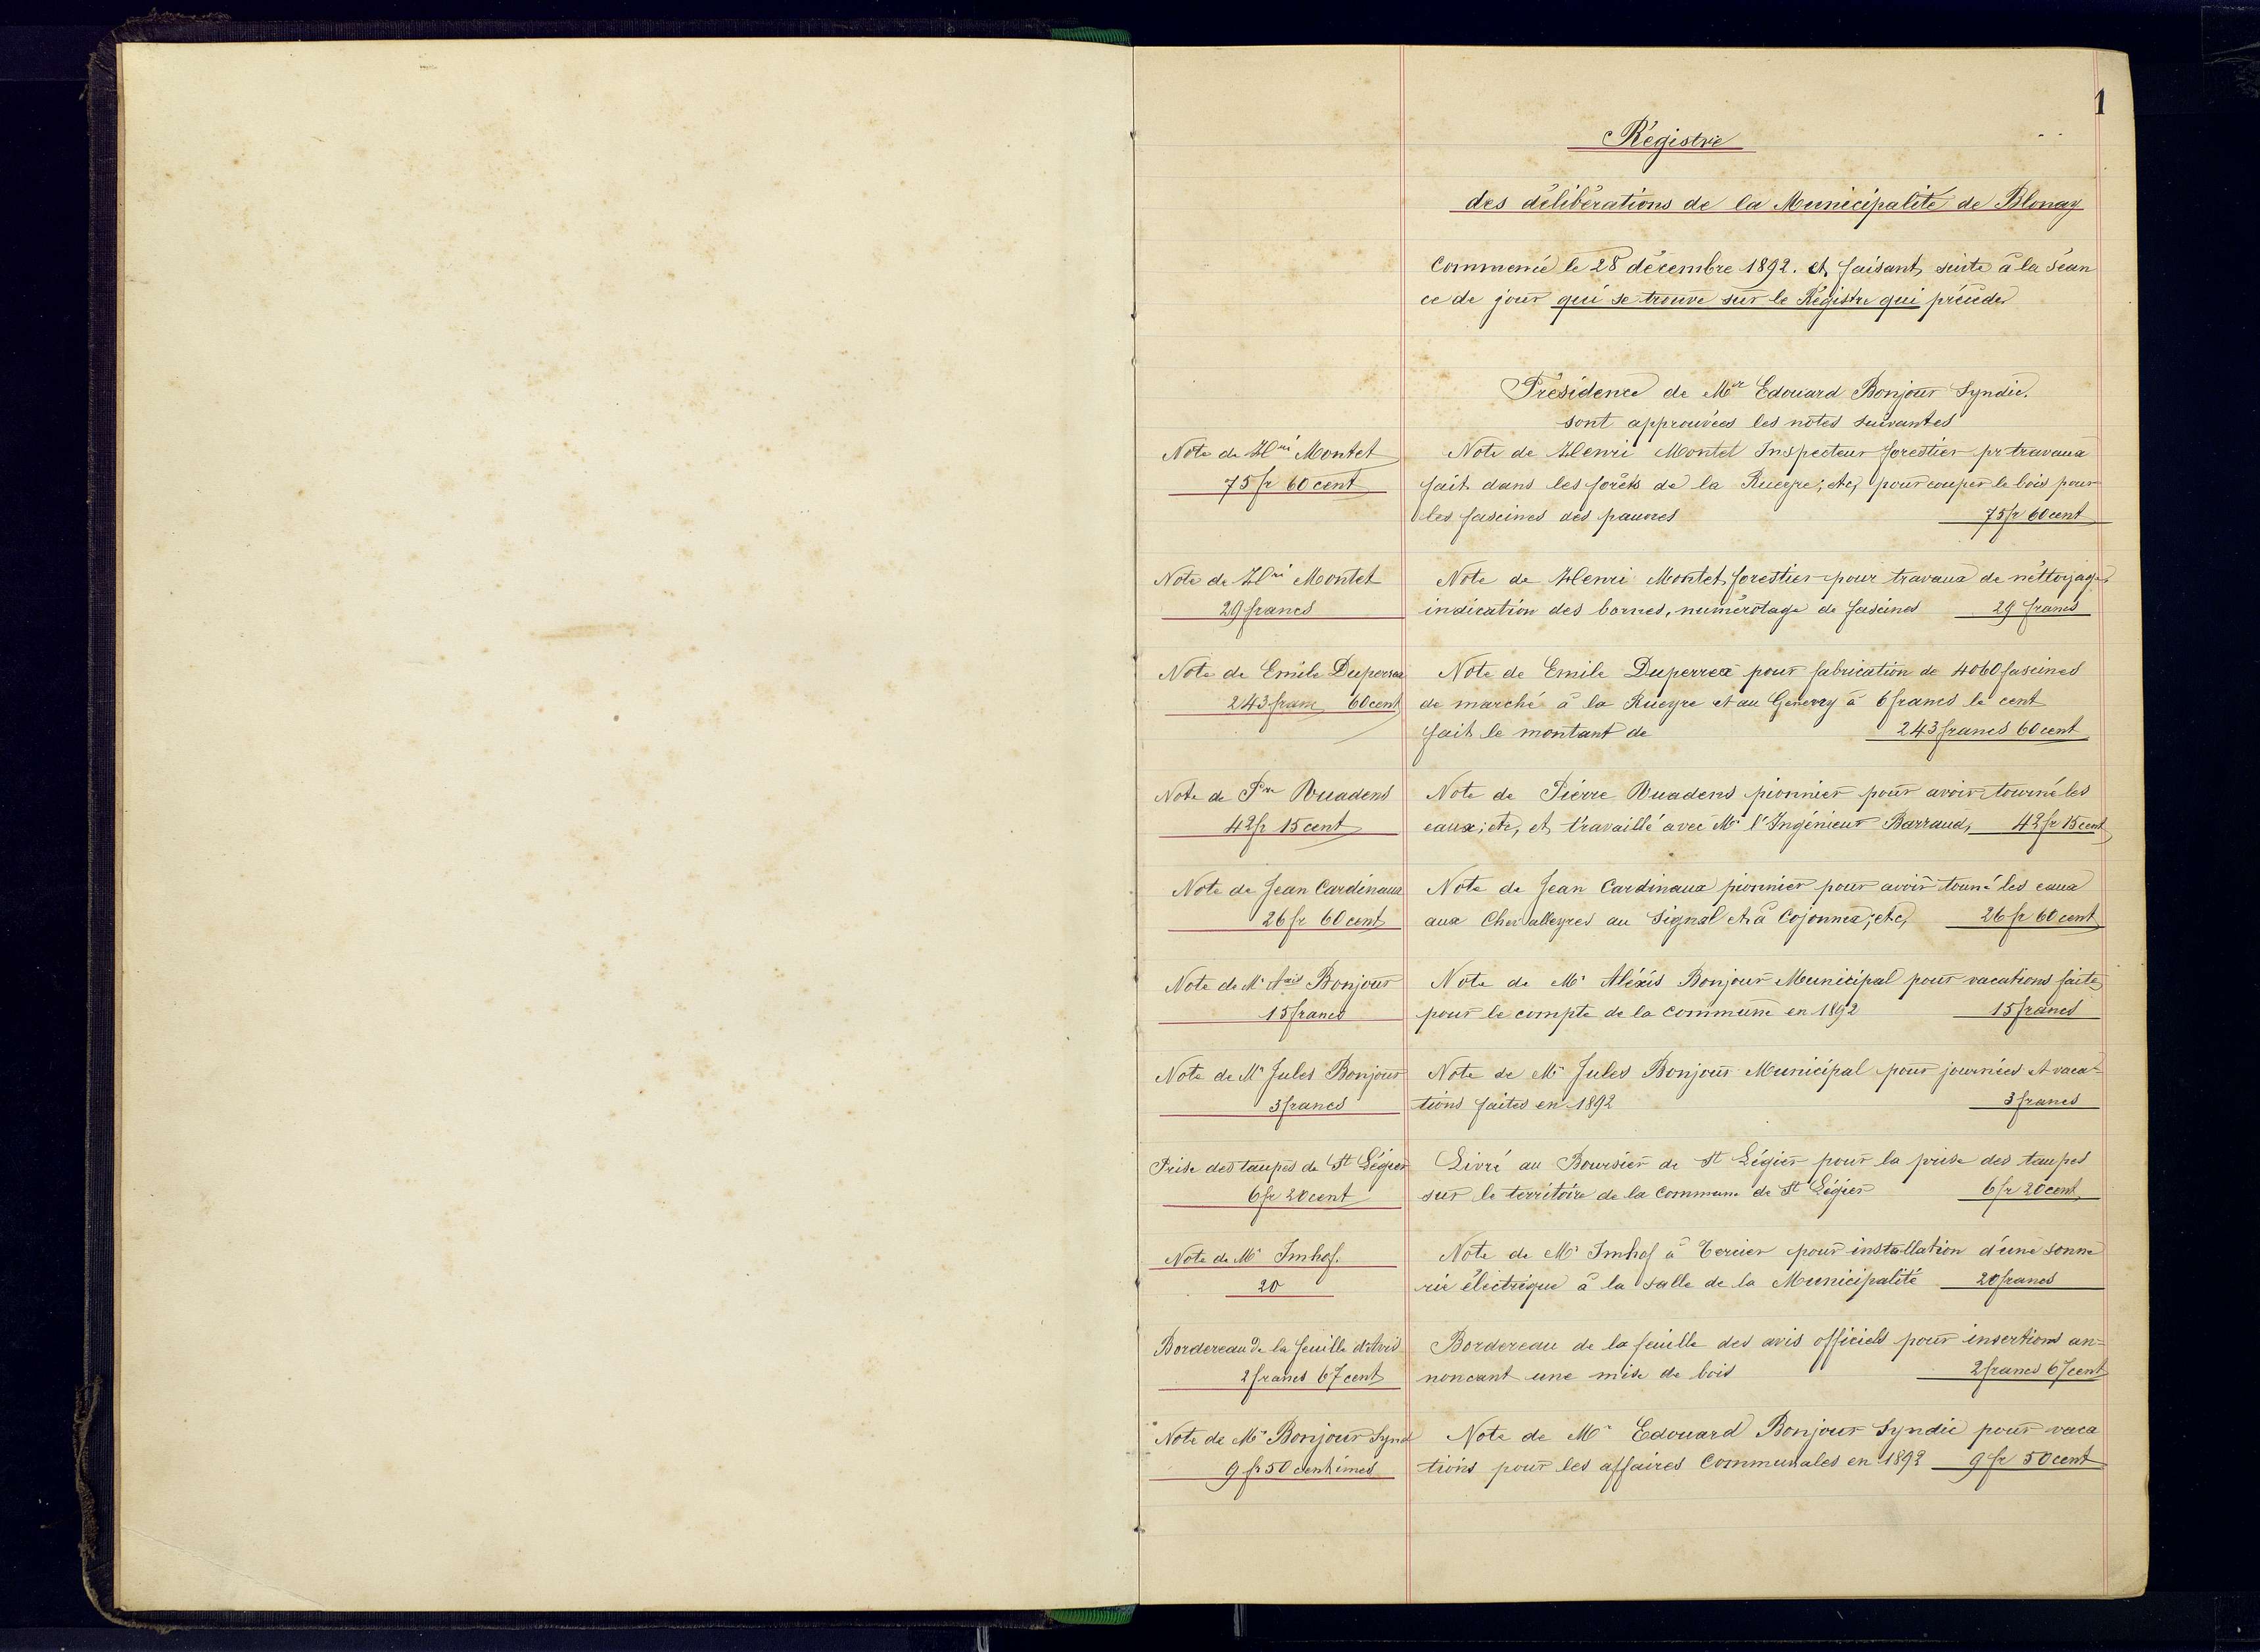 1
Régistre
des délibérations de la Municipalité de Blonay
Commencé le 28 décembre 1892. et faisant suite à la séan
ce de jour qui se trouve sur le Régistre qui précède
Présidence de Mr Edouard Bonjour Syndic.
sont approuvées les notes suivantes
Note de Hri Montet
75 fr 60 cent
Note de Henri Montet Inspecteur forestier pr travaux
fait dans les forêts de la Rueyre; etc, pour couper le bois pour
les fascines des pauvres 75 fr 60 cent
Note de Hri Montet
29 francs
Note de Henri Montet forestier pour travaux de néttoyage
indication des bornes, numérotage de fascines 29 francs
Note de Emile Duperrex
243 franc 60 cent
Note de Emile Duperrex pour fabrication de 4060 fascines
de marché à la Rueyre et au Genevry à 6 francs le cent
fait le montant de 243 francs 60 cent
Note de Pre Vuadens
42 fr 15 cent
Note de Pierre Vuadens pionnier pour avoir tourné les
eaux; etc, et travaillé avec Mr l'Ingénieur Barraud, 42 fr 15 cent
Note de Jean Cardinaux
26 fr 60 cent
Note de Jean Cardinaux pionnier pour avoir tourné les eaux
aux Chevalleyres au Signal et à Cojonnex; etc, 26 fr 60 cent
Note de Mr Axis Bonjour
15 francs
Note de Mr Aléxis Bonjour Municipal pour vacations faite
pour le compte de la commune en 1892 15 francs
Note de Mr Jules Bonjour
3 francs
Note de Mr Jules Bonjour Municipal pour journées et vaca-
tions faites en 1892 3 francs
Prise des taupes de St Légier
6 fr 20 cent
Livré au Boursier de St Légier pour la prise des taupes
sur le territoire de la Commune de St Légier 6 fr 20 cent
Note de Mr Imhof.
20
Note de Mr Imhof à Tercier pour installation d'une sonne
rie électrique à la salle de la Municipalité 20 francs
Bordereau de la feuille d'Avis
2 francs 67 cent
Bordereau de la feuille des avis officiels pour insertions an=
noncant une mise de bois 2 francs 67 cent
Note de Mr Bonjour Synd
9 fr 50 centimes
Note de Mr Edouard Bonjour Syndic pour vaca
tions pour les affaires Communales en 1892 9 fr 50 cent